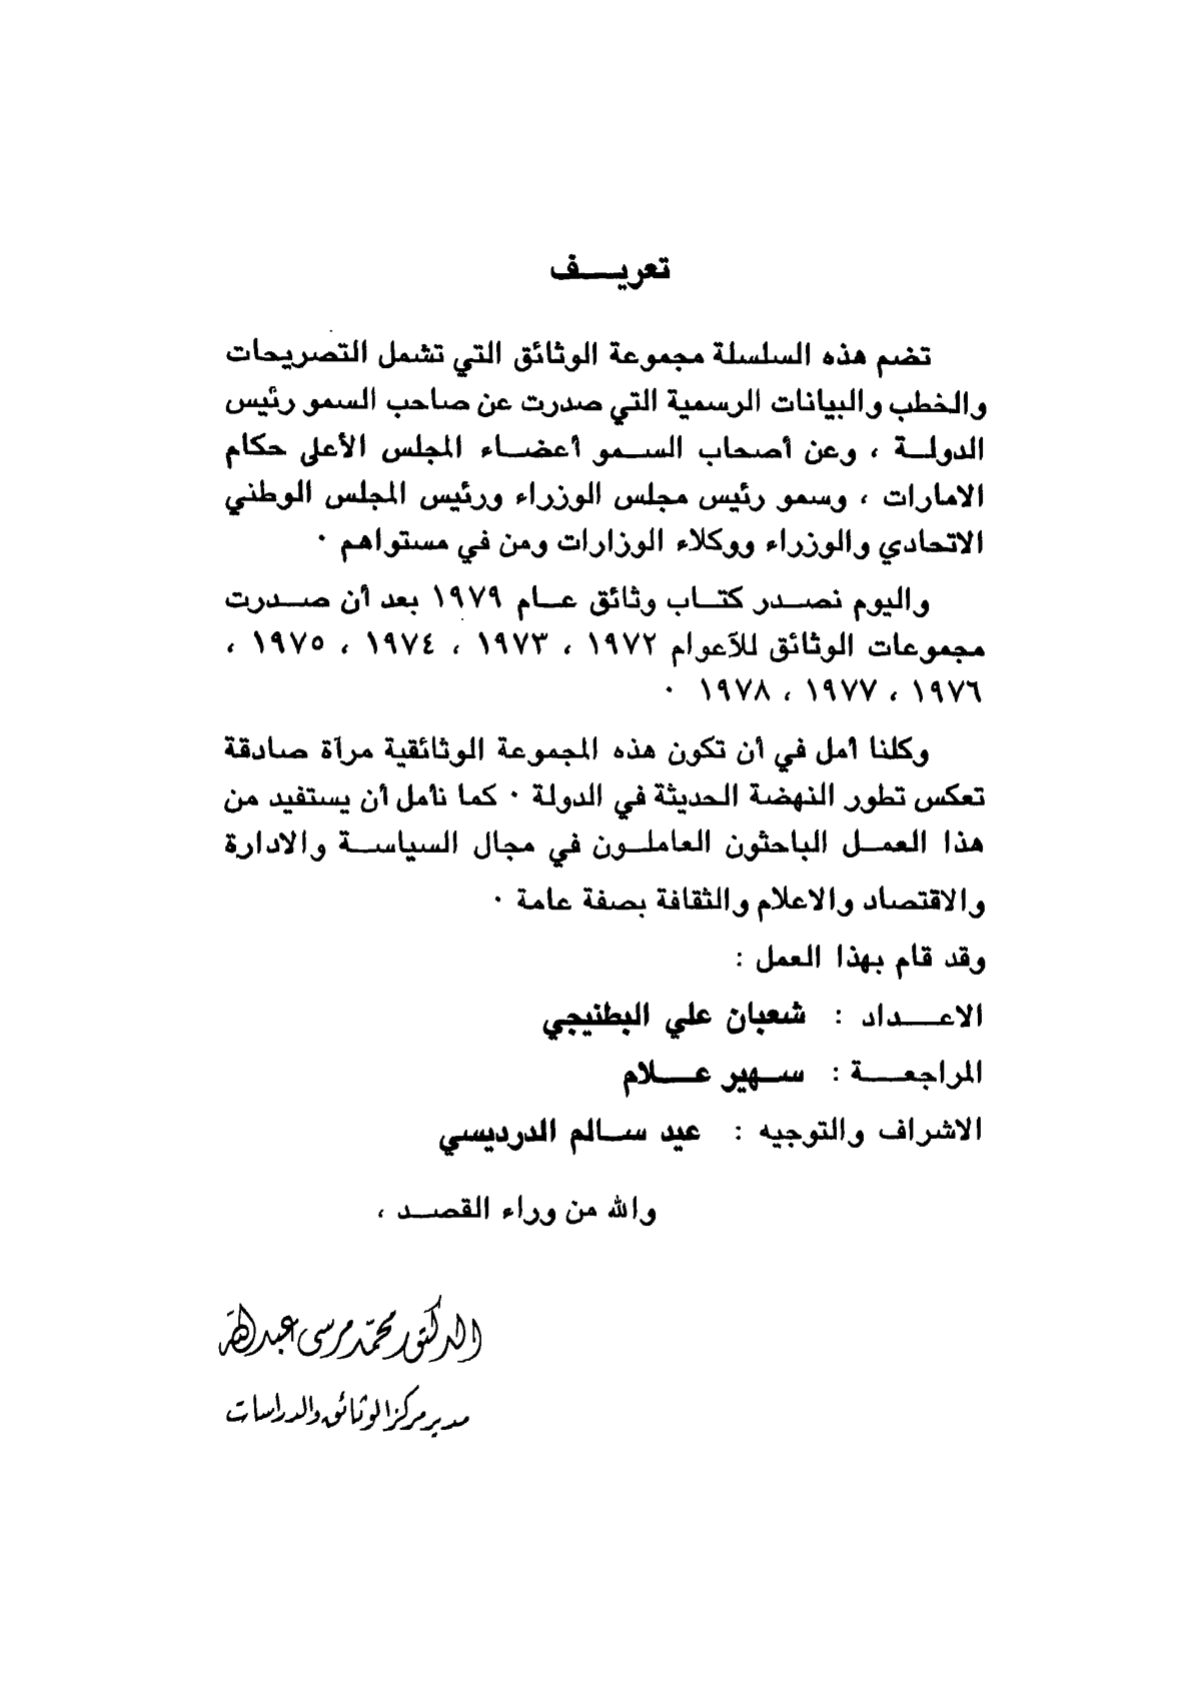 تعريـــف
تضم هذه السلسلة مجموعة الوثائق التي تشمل التصريحات
والخطب والبيانات الرسمية التي صدرت عن صاحب السمو رئيس
الدولــة ، وعن أصحاب الســمو أعضــاء المجلس الأعلى حكام
الامارات ، وسمو رئيس مجلس الوزراء ورئيس المجلس الوطني
الاتحادي والوزراء ووكلاء الوزارات ومن في مستواهم ٠
واليوم نصــدر كتــاب وثائق عــام ١٩٧٩ بعد أن صــدرت
مجموعات الوثائق للآعوام ١٩٧٢ ، ١٩٧٣ ، ١٩٧٤ ، ١٩٧٥ ،
١٩٧٦ ، ١٩٧٧ ، ١٩٧٨ ٠
وكلنا أمل في أن تكون هذه المجموعة الوثائقية مرآة صادقة
تعكس تطور النهضة الحديثة في الدولة ٠ كما نأمل أن يستفيد من
هذا العمــل الباحثون العاملــون في مجال السياســة والادارة
والاقتصاد والاعلام والثقافة بصفة عامة ٠
وقد قام بهذا العمل :
الاعـــداد : شعبان علي البطنيجي
المراجعـــة : ســهير عـــلام
الاشراف والتوجيه : عيد ســالم الدرديسي
والله من وراء القصــد ،
الدكتور محمّد مرسى عبدالله
مدير مركز الوثائق والدراسات